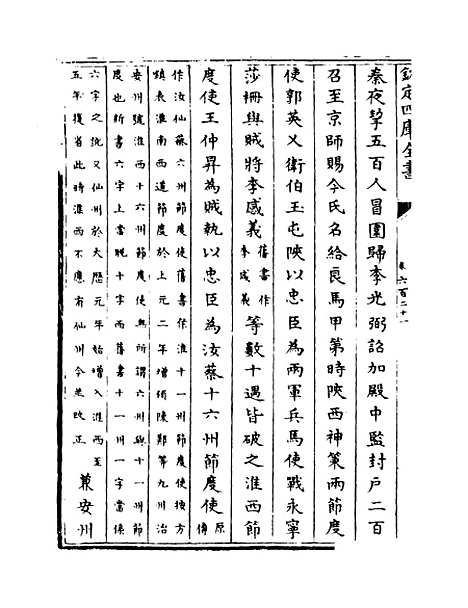 欽定四庫全書
卷六百二十一
秦夜挈五百人冒圍歸李光弼詔加殿中監封戶二百
召至京師賜今氏名給良馬甲第時陝西神策兩節度
使郭英乂衛伯玉屯陝以忠臣為兩軍兵馬使戰永寧
莎柵與賊將李感義舊書作李成義等數十遇皆破之淮西節
度使王仲昇為賊執以忠臣為汝蔡十六州節度使原傳
作汝仙蔡六州節度使舊書作淮十一州節度使按方
鎮表淮南西道節度於上元二年增領陳鄭等九州治
安州號淮西十六州節度使無所謂六州與十一州節
度也新書六字上當脫十字而舊書十一州一字當係
六字之訛又仙州於大歷元年始增入淮西至
五年復省此時淮西不應有仙州今並改正
兼安州